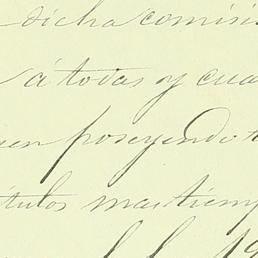 dicha comisi
á todas y cua
en poseyendo
tulos mas tiemp